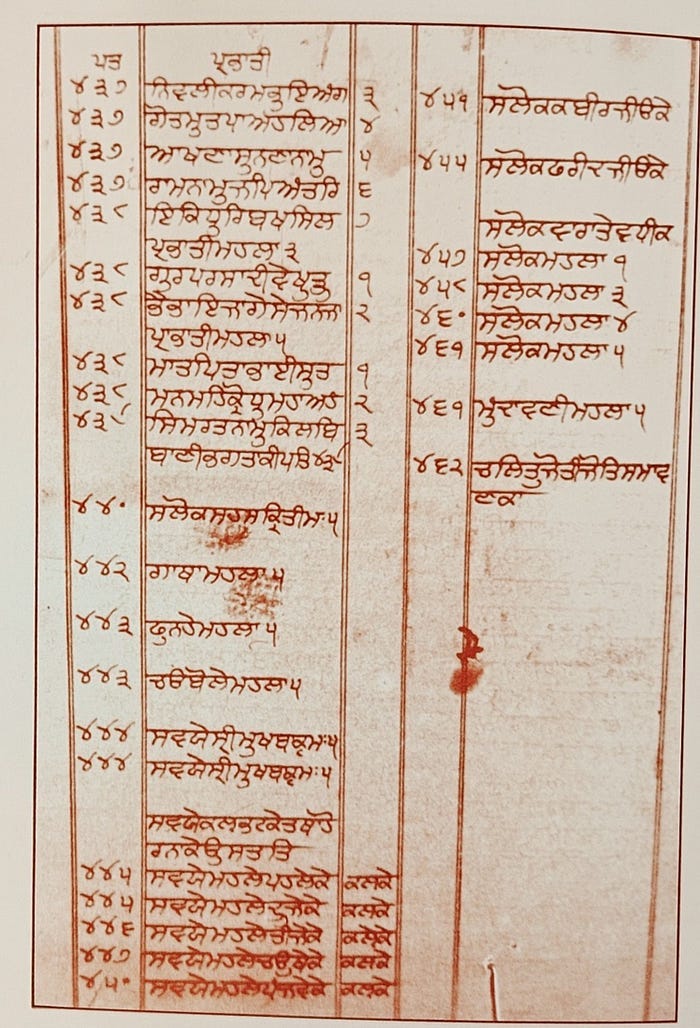 ਪਤ ਪ੍ਰਭਾਤੀ
੪੩੭ ਨਿਵਲੀਕਰਮਭੁਇਅੰਗ ੩
੪੩੭ ਗੋਤਮੁਤਪਾਅਹਲਿਆ ੪
੪੩੭ ਆਖਣਾਸੁਨਣਾਨਾਮੁ ੫
੪੩੭ ਰਾਮਨਾਮੁਜਪਿਅੰਤਰਿ ੬
੪੩੮ ਇਕਿਧੁਰਿਬਖਸਿਲ ੭
ਪ੍ਰਭਾਤੀਮਹਲਾ ੩
੪੩੮ ਗੁਰਪਰਸਾਦੀਵੇਖੁਤੂ ੧
੪੩੮ ਭੈਭਾਇਜਾਗੇਸੇਜਨਜਾ ੨
ਪ੍ਰਭਾਤੀਮਹਲਾ ੫
੪੩੮ ਮਾਤਪਿਤਾਭਾਈਸੁਤ ੧
੪੩੮ ਮਨਮਹਿਕ੍ਰੋਧੁਮਹਾਅਹ ੨
੪੩੯ ਸਿਮਰਤਨਾਮੁਕਿਲਬਿ ੩
ਬਾਣੀਭਗਤਕੀਪਤਿ੪੩੯
੪੪੦ ਸਲੋਕਸਹਸਕ੍ਰਿਤੀਮਃ੫
੪੪੨ ਗਾਥਾਮਹਲਾ ੫
੪੪੩ ਫੁਨਹੇਮਹਲਾ ੫
੪੪੩ ਚਉਬੋਲੇਮਹਲਾ ੫
੪੪੪ ਸਵਯੇਸ੍ਰੀਮੁਖਬਾਕ੍ਯਮਃ੫
੪੪੪ ਸਵਯੇਸ੍ਰੀਮੁਖਬਾਕ੍ਯਮਃ ੫
ਸਵਯੇਕਲਭਟਕੇਤਥਾਹੋ
ਰਨਕੇਉਸਤਤਿ
੪੪੫ ਸਵਯੇਮਹਲੇਪਹਲੇਕੇ ਕਲਕੇ
੪੪੫ ਸਵਯੇਮਹਲੇਦੂਜੇਕੇ ਕਲਕੇ
੪੪੬ ਸਵਯੇਮਹਲੇਤੀਜੇਕੇ ਕਲਕੇ
੪੪੭ ਸਵਯੇਮਹਲੇਚਉਥੇਕੇ ਕਲਕੇ
੪੫੦ ਸਵਯੇਮਹਲੇਪੰਜਵੇਕੇ ਕਲਕੇ
੪੫੧ ਸਲੋਕਕਬੀਰਜੀਓਕੇ
੪੫੫ ਸਲੋਕਫਰੀਦਜੀਓਕੇ
ਸਲੋਕਵਾਰਾਤੇਵਧੀਕ
੪੫੭ ਸਲੋਕਮਹਲਾ ੧
੪੫੮ ਸਲੋਕਮਹਲਾ ੩
੪੬੦ ਸਲੋਕਮਹਲਾ ੪
੪੬੧ ਸਲੋਕਮਹਲਾ ੫
੪੬੧ ਮੁੰਦਾਵਣੀਮਹਲਾ ੫
੪੬੨ ਚਲਿਤੁਜੋਤੀਜੋਤਿਸਮਾਵ
ਣਕਾ